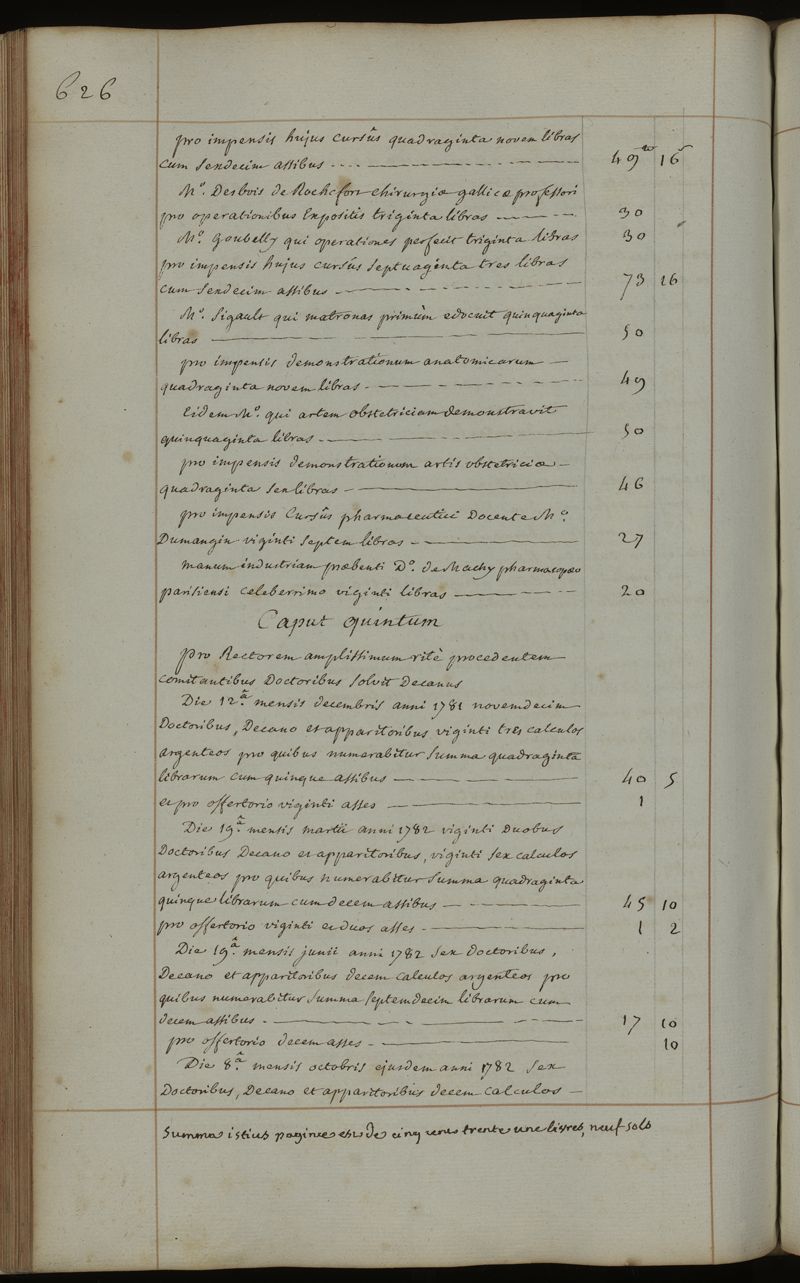 626
pro impensis hujus cursûs quadraginta novem libras
cum sexdecim assibus 49 16
M.o Desbois de Rochefort chirurgiæ gallicæ professori
pro operationibus expositis triginta libras 30
M.o Goubelly qui operationes perfecit triginta libras 30
pro impensis hujus cursûs septuaginta tres libras
cum sexdecim assibus 73 16
M.o Sigault qui matronas primùm edocuit quinquaginta
libras 50
pro impensis demonstrationum anatomicarum
quadraginta novem libras 49
Eidem M.o qui artem obstetriciam demonstravit
quinquaginta libras 50
pro impensis demonstrationum artis obstetriciæ
quadraginta sex libras 46
pro impensis Cursûs pharmaceutici Docente M.o
Dumangin viginti septem libras 27
manum industriam præbenti D.o de Machy pharmacopæo
parisiensi celeberrimo viginti libras 20
Caput quintum
pro Rectorem amplissimum ritè procedentem
comitantibus Doctoribus solvit Decanus
Die 12.â mensis decembris anni 1781 novemdecim
Doctoribus, Decano et apparitoribus viginti tres calculos
argenteos pro quibus numerabitur summa quadraginta
librarum cum quinque assibus 40 5
et pro offertorio viginti asses 1
Die 19.â mensis martii anni 1782 viginti Duobus
Doctoribus Decano et apparitoribus, viginti sex calculos
argenteos pro quibus numerabitur summa quadraginta
quinque librarum cum decem assibus 45 10
pro offertorio viginti et duos asses 1 2
Die 19.â mensis junii anni 1782 sex doctoribus,
Decano et apparitoribus decem calculos argenteos pro
quibus numerabitur summa septemdecim librarum cum
decem assibus 17 10
pro offertorio decem asses 10
Die 8.â mensis octobris ejusdem anni 1782 sex
Doctoribus, Decano et apparitoribus decem calculos
Summa istius paginæ est de cinq cents trente une livres, neuf sols